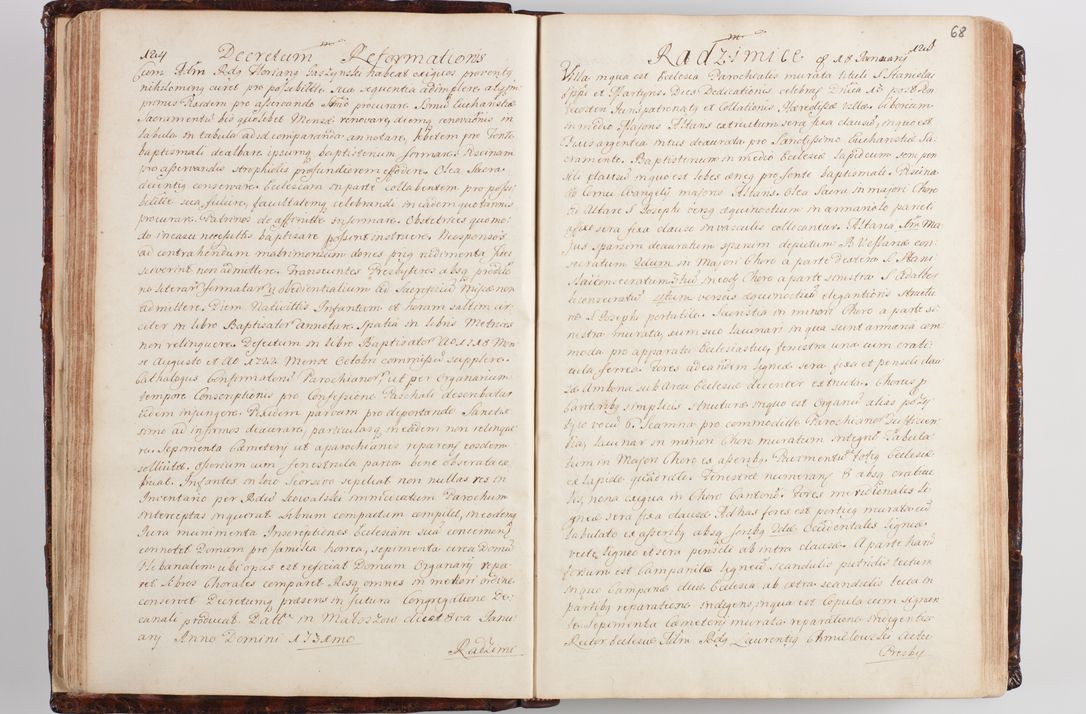 124 Decretum Reformationis
Cum Adm Rdg Floriang Łaszynski habeat exiguos proventg
nihiloming curet pro possibilitte sua sequentia adimplere
primis Pixidem pro asservando procurare Eucharistiæ
Sacramentū bis quolibet Mense renovare, diemq renovãnis in
tabula in tabula ad id comparanda annotare. Lebetem pro Fonte
baptismali dealbare ipsumq baptisterium formare. Piscinam
pro asservandis strophiolis profundiorem effodere. Olea Sacra
decentiq conservare Ecclesiam in parte collabentem pro possi
bilitte sua, facultatemq celebrandi in eadem quotannis
procurare. Patrinos de affinitte informare. Obstetrices quomo
do in casu necessitts baptisare possent instruere. Neosponsos
ad contrahendum matrimonium donec prig rudimenta fidei
sciverint non admittere. Transeuntes Presbyteros absq
no literar formatar et obedientialium ad Sacrificiū Missæ non
admittere. Diem Nativittis Infantium et horam saltem cir
citer in libro Baptisator annotare. Spatia in libris Metrices
non relinquere. Defectum in libro Baptisator Ao 1718 Men
se Augusto et Ao 1722 Mense Octobri commissū supplere.
Cathalogus Confirmatorū Parochianor, ut per Organarium
tempore Conscriptionis pro Confessione Paschali describatur
eidem injungere. Pixidem parvam pro deportando Sanctis
simo ad infirmos deaurare, particulasq in eadem non relinque
re. Sepimenta Cæmeterij ut a parochianis reparenr eosdem
sollicitet. Ossorium cum fenestrula parva bene obserata
fiat. Infantes in loco seorsivo sepeliat non nullas res in
Inventario per Rdū Kowalski immediatum Parochum
interceptas inquirat. Librum compactum compilet, in eodemq
Jura munimenta Inscriptiones Ecclesiam suā concernen
connotet Domum pro familia horrea, sepimenta circa Domū
Plebanalem ubi opus est reficiat Domum Organarij repa
ret Libros Chorales comparet Resq omnes in meliori ordine
conservet Decretumq præsens in futura Congregatione De
canali producat. Datt in Makoszow die 8va Janu
arij Anno Domini 173
Radzimi

68
Radzimice 18 Januarij 125
Villa in qua est Ecclesia Parochialis murata tituli S Stanislai
Eppi et Martyris. Dies Dedicationis celebrat Dnica 1a post
Jurispatronatg et Collationis Hæredisse villæ
in medio Majoris Altaris extructum sera fixa clausū, in quo est
Pixis argentea intus deaurata pro Sanctissimo Eucharistiæ Sa
cramento. Baptisterium in medio Ecclesiæ lapideum
plattū in quo est lebes æneg pro fonte baptismali. Piscina
in Cornu Evangelij majoris Altaris. Olea Sacra in majori Choro
ad Altare S Josephi versg æquinoctium in armariolo parieti
affixo sera fixa clauso in vasculis collocantur. Altaria 4m Ma
jus sparsim deauratum sparsim depictum B Vestianæ con
secratum. 2dum in Majori Choro a parte Dextera S. Stani
slai consecratum. 3tiū in eodem Choro a parte sinistra S Adalber
ti consecratū 4tum versus æquinoctiū elegantioris structu
ræ S Josephi portatile. Sacristia in minori Choro a parte si
nistra murata, cum suo lacunari in qua sunt armaria com
moda pro apparatu Ecclesiastico, fenestra una cum crati
cula ferrea. Fores ad eandem ligneæ sera fixa et pensili clau
sæ Ambona sub Arcu Ecclesiæ decenter extructa. Chorus p
Cantoribg simplicis structuræ in quo est Organū
vocū 6. Scamna pro commoditte Parochianor
lia, lacunar in minori Choro muratum integrū Tabula
tum in Majori Choro ex asseribg. Pavimentū totig Ecclesiæ
ex lapide quadrato. Fenestræ numerantr 8 absq craticu
lis, nona exigua in Choro Cantorū. Fores meridionales li
gneæ sera fixa clausæ. Ad has fores est porticg muratg cū
tabulato ex asseribg absq foribg. 2dæ Occidentales ligneæ
vecte ligneo et sera pensili ab intra clausæ. A parte harū
forium est Campanile ligneū scandulis putridis tectum
in quo Campanæ duæ. Ecclesia ab extra scandulis tecta in
partibg reparatione indigens, in qua est Copula cum signo
lo. Sepimenta Cæmeterij murata reparatione indigentia.
Rector Ecclesiæ Adm Rdg Laurentig Chmielowski
Presby